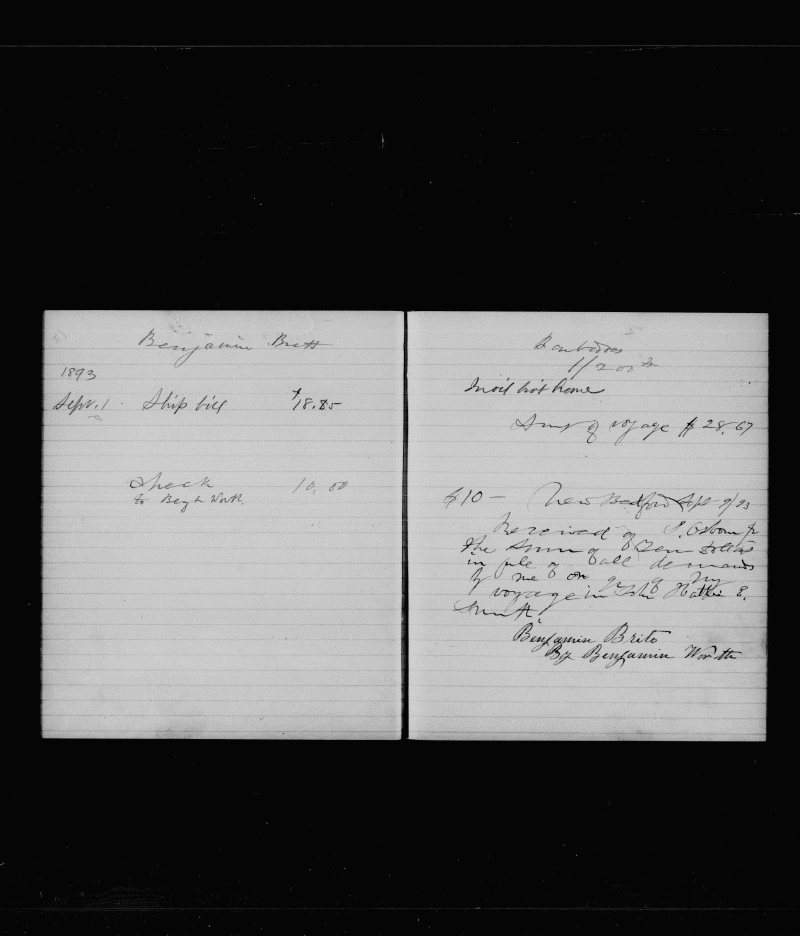 Benjamin Brett
1893
Sept. 1 Ship bill $18.85
Check 10.00
to Benj Worth.
Barbados
1/200
In oil but home
Sum of voyage $28.67
$10 — New Bedford Sept 9/93
Received of S. Osborn Jr
the sum of Ten dollars
in full of all demands
of me on of my
voyage in Schr Hattie E.
Smith.
Benjamin Brito
By Benjamin Worth